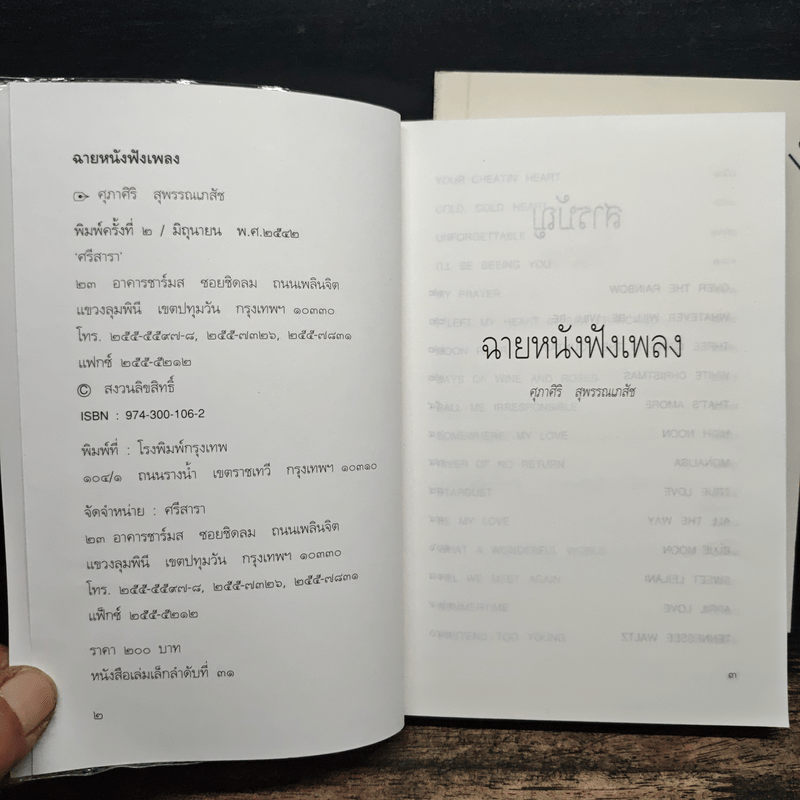 ฉายหนังฟังเพลง
ศุภาศิริ สุพรรณเภสัช
พิมพ์ครั้งที่ ๒ / มิถุนายน พ.ศ.๒๕๔๒
'ศรีสารา'
๒๓ อาคารชาร์มส ซอยชิดลม ถนนเพลินจิต
แขวงลุมพินี เขตปทุมวัน กรุงเทพฯ ๑๐๓๓๐
โทร. ๒๕๕-๕๕๙๗-๘, ๒๕๕-๗๓๒๖, ๒๕๕-๗๘๓๑
แฟกซ์ ๒๕๕-๕๒๑๒
© สงวนลิขสิทธิ์
ISBN : 974-300-106-2
พิมพ์ที่ : โรงพิมพ์กรุงเทพ
๑๐๔/๑ ถนนรางน้ำ เขตราชเทวี กรุงเทพฯ ๑๐๓๑๐
จัดจำหน่าย : ศรีสารา
๒๓ อาคารชาร์มส ซอยชิดลม ถนนเพลินจิต
แขวงลุมพินี เขตปทุมวัน กรุงเทพฯ ๑๐๓๓๐
โทร. ๒๕๕-๕๕๙๗-๘, ๒๕๕-๗๓๒๖, ๒๕๕-๗๘๓๑
แฟ็กซ์ ๒๕๕-๕๒๑๒
ราคา ๒๐๐ บาท
หนังสือเล่มเล็กลำดับที่ ๓๑
๒
ฉายหนังฟังเพลง
ศุภาศิริ สุพรรณเภสัช
สารบัญ
YOUR CHEATIN' HEART
UNFORGETTABLE
I'LL BE SEEING YOU
OVER THE RAINBOW
MY PRAYER
WHATEVER WILL BE WILL BE
I LEFT MY HEART
WHITE CHRISTMAS
DAYS OF WINE AND ROSES
THAT'S AMORE
CALL ME IRRESPONSIBLE
HIGH NOON
SOMEWHERE MY LOVE
MONALISA
RIVER OF NO RETURN
TRUE LOVE
STARDUST
ALL THE WAY
BLUE MOON
WHAT A WONDERFUL WORLD
SWEET LEILANI
TILL WE MEET AGAIN
APRIL LOVE
SUMMERTIME
TENNESSEE WALTZ
๓